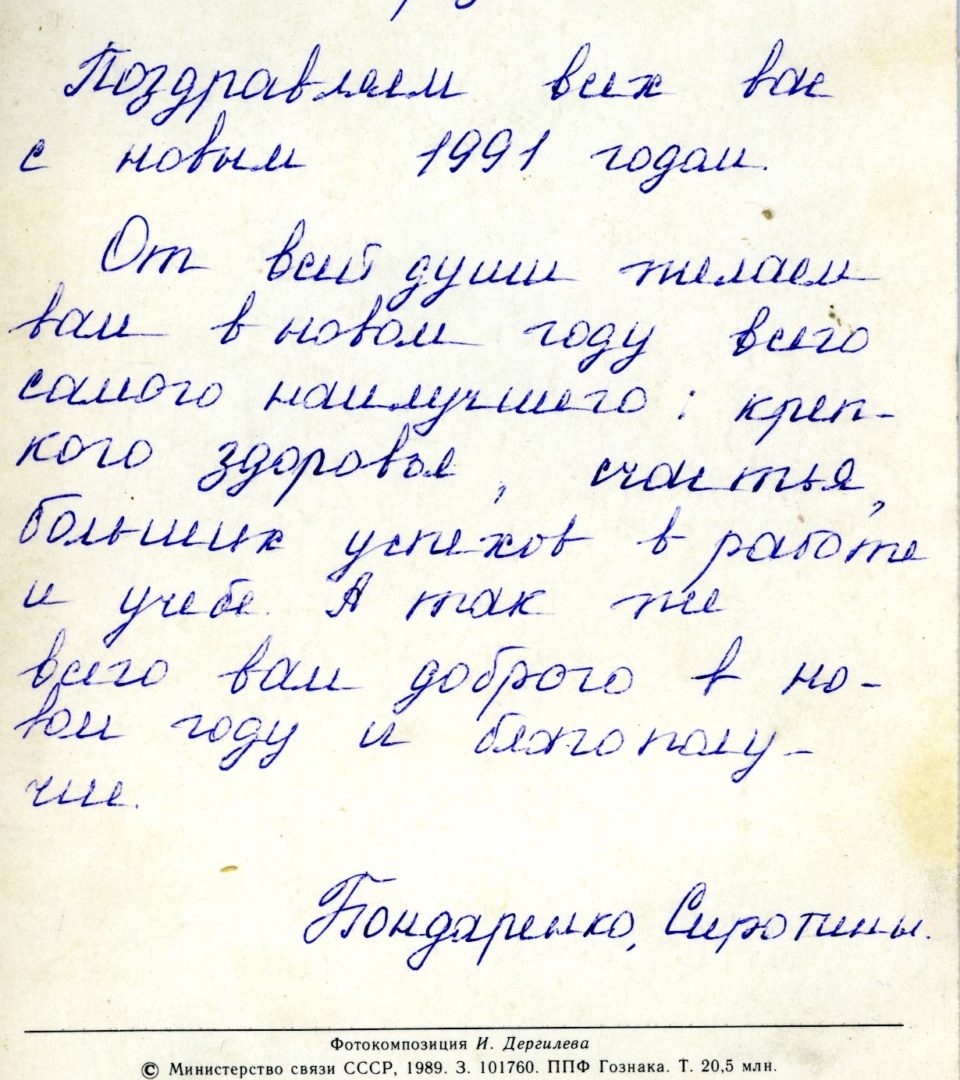 Поздравляем всех вас
с новым 1991 годом.
От всей души желаем
вам в новом году всего
самого наилучшего: креп-
кого здоровья, счастья,
больших успехов в работе
и учебе. А так же
всего вам доброго в но-
вом году и благополу-
чие.
Бондаренко, Сиротины.
Фотокомпозиция И. Дергилева
© Министерство связи СССР, 1989. З. 101760. ППФ Гознака. Т. 20,5 млн.